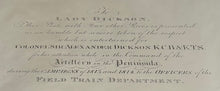 To
LADY DICKSON,
This Plate and two other Pieces presented
as an humble but sincere token of the respect
which is entertained for
COLONEL SIR ALEXANDER DICKSON K.C.B. & K.T.S.
for his attention while in the Command of the
Artillery in the Peninsula,
during the CAMPAIGNS of 1813 & 1814, by the OFFICERS of the
FIELD TRAIN DEPARTMENT.